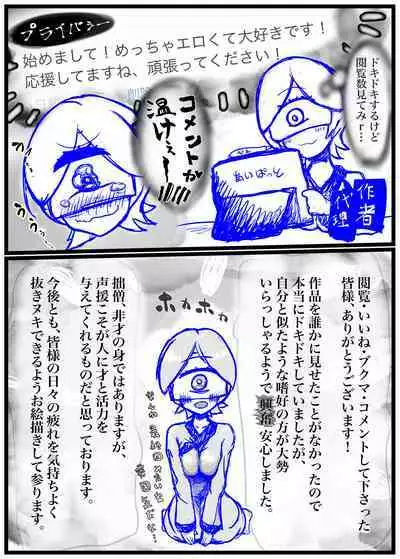 プライバシー
始めまして！めっちゃエロくて大好きです！
応援してますね、頑張ってください！
ドキドキするけど
閲覧数見てみｒ…
コメントが
温けぇ～
あいぱっど
作者
代理
閲覧・いいね・ブクマ・コメントして下さった
皆様、ありがとうございます！
作品を誰かに見せたことがなかったので
本当にドキドキしていましたが、
自分と似たような嗜好の方が大勢
いらっしゃるようで
安心しました。
ホカホカ
拙僧、非才の身ではありますが、
声援こそが人に才と活力を
与えてくれるものだと思っております。
今後とも、皆様の日々の疲れを気持ちよく
抜きヌキできるようお絵描きして参ります。